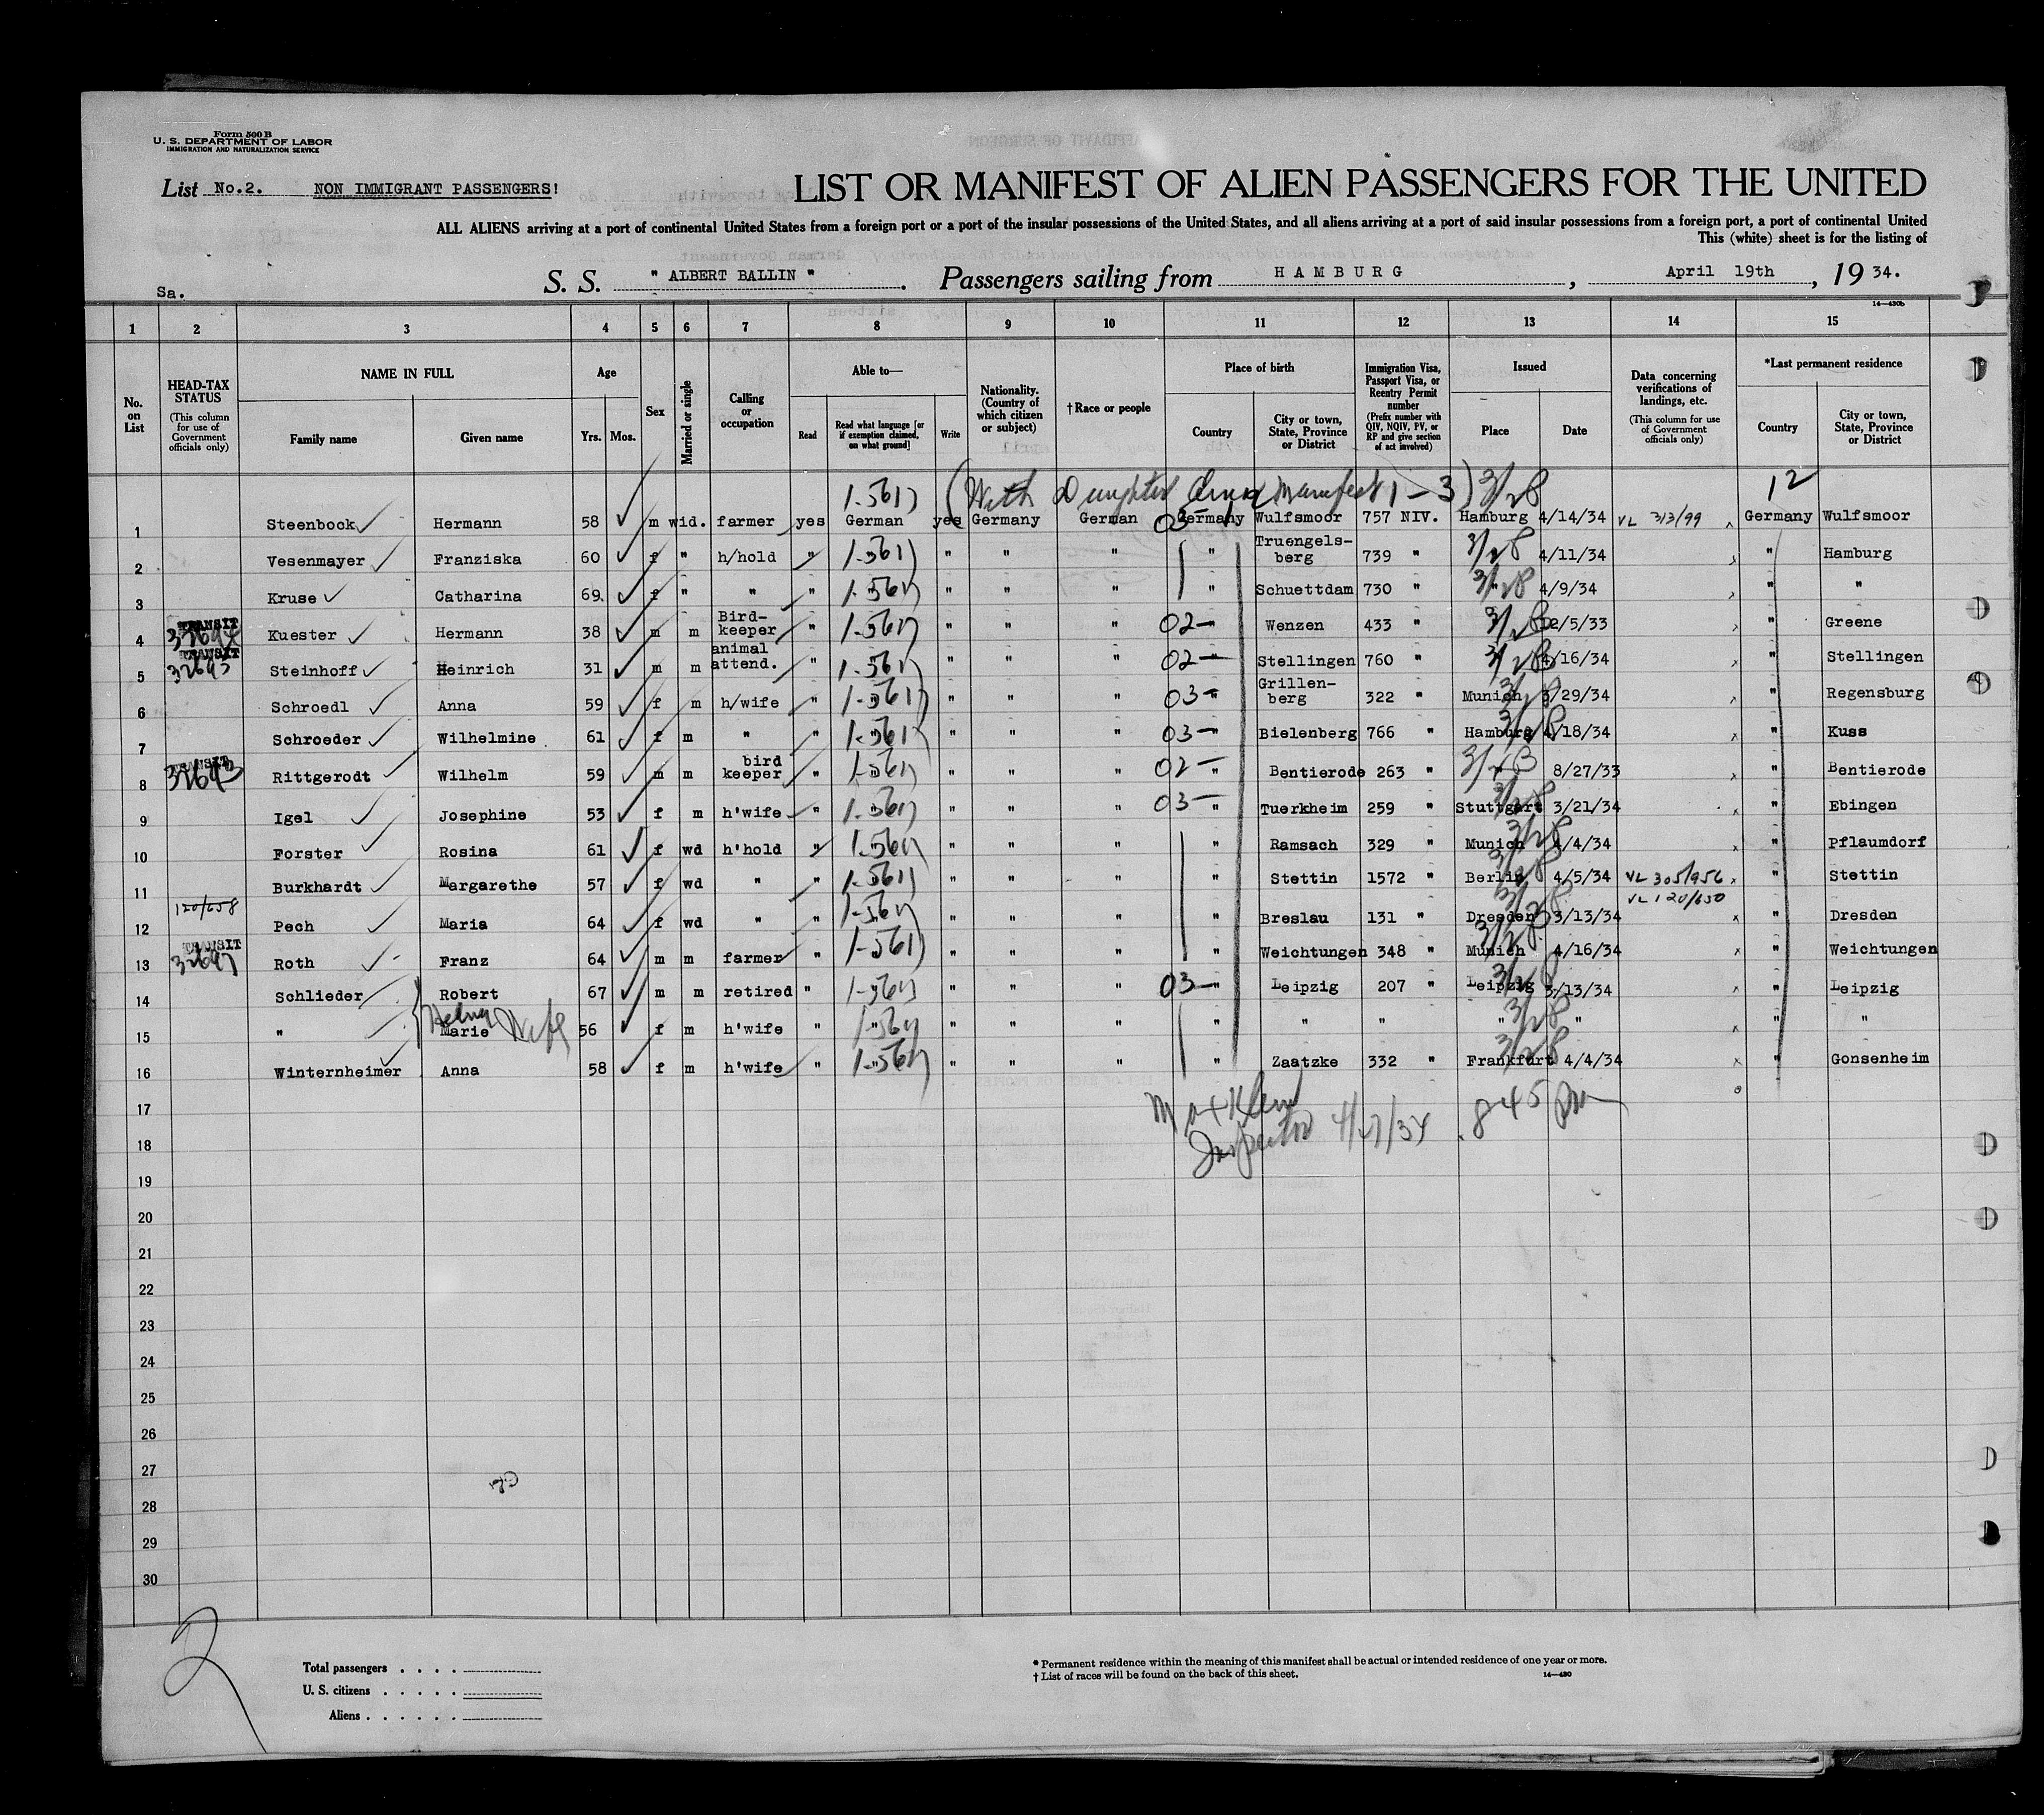 Form 500 B
U. S. DEPARTMENT OF LABOR
IMMIGRATION AND NATURALIZATION SERVICE
List No.2. NON IMMIGRANT PASSENGERS!
LIST OR MANIFEST OF ALIEN PASSENGERS FOR THE UNITED
ALL ALIENS arriving at a port of continental United States from a foreign port or a port of the insular possessions of the United States, and all aliens arriving at a port of said insular possessions from a foreign port, a port of continental United
This (white) sheet is for the listing of
Sa. S. S. " ALBERT BALLIN ". Passengers sailing from HAMBURG, April 19th, 19 34.
14—430b
1 2 3 4 5 6 7 8 9 10 11 12 13 14 15
No. on List
HEAD-TAX STATUS (This column for use of Government officials only)
NAME IN FULL Family name Given name
Age Yrs. Mos.
Sex
Married or single
Calling or occupation
Able to— Read Read what language [or if exemption claimed, on what ground] Write
Nationality. (Country of which citizen or subject)
† Race or people
Place of birth Country City or town, State, Province or District
Immigration Visa, Passport Visa, or Reentry Permit number (Prefix number with QIV, NQIV, PV, or RP and give section of act involved)
Issued Place Date
Data concerning verifications of landings, etc. (This column for use of Government officials only)
*Last permanent residence Country City or town, State, Province or District
(With Daughter Manifest 1 – 3) 3/28 12
1 Steenbock Hermann 58 m wid. farmer yes German yes Germany German 03 Germany Wulfsmoor 757 NIV. Hamburg 4/14/34 VL 313/99 Germany Wulfsmoor
2 Vesenmayer Franziska 60 f " h/hold " " " " " Truengels-berg 739 " 3/28 4/11/34 " Hamburg
3 Kruse Catharina 69 f " " " " " " " Schuettdam 730 " 3/28 4/9/34 " "
4 TRANSIT Kuester Hermann 38 m m Bird-keeper " " " " 02 – " Wenzen 433 " 3/28 12/5/33 " Greene
5 TRANSIT 32645 Steinhoff Heinrich 31 m m animal attend. " " " " 02 – " Stellingen 760 " 3/28 4/16/34 " Stellingen
6 Schroedl Anna 59 f m h/wife " " " " 03 – " Grillen-berg 322 " Munich 3/29/34 " Regensburg
7 Schroeder Wilhelmine 61 f m " " " " " 03 – " Bielenberg 766 " Hamburg 4/18/34 " Kuss
8 TRANSIT 32643 Rittgerodt Wilhelm 59 m m bird keeper " " " " 02 – " Bentierode 263 " " 8/27/33 " Bentierode
9 Igel Josephine 53 f m h'wife " " " " 03 – " Tuerkheim 259 " Stuttgart 3/21/34 " Ebingen
10 Forster Rosina 61 f wd h'hold " " " " " Ramsach 329 " Munich 4/4/34 " Pflaumdorf
11 Burkhardt Margarethe 57 f wd " " " " " " Stettin 1572 " Berlin 4/5/34 VL 305/956 " Stettin
12 120/658 Pech Maria 64 f wd " " " " " " Breslau 131 " Dresden 3/13/34 VL 120/650 " Dresden
13 TRANSIT Roth Franz 64 m m farmer " " " " " Weichtungen 348 " Munich 4/16/34 " Weichtungen
14 Schlieder Robert 67 m m retired " " " " 03 – " Leipzig 207 " Leipzig 3/13/34 " Leipzig
15 " Marie Wife 56 f m h'wife " " " " " " " " " " "
16 Winternheimer Anna 58 f m h'wife " " " " " Zaatzke 332 " Frankfurt 4/4/34 " Gonsenheim
17
Inspector 4/27/34 845 pm
18
19
20
21
22
23
24
25
26
27
28
29
30
2
Total passengers
U. S. citizens
Aliens
* Permanent residence within the meaning of this manifest shall be actual or intended residence of one year or more.
† List of races will be found on the back of this sheet. 14—430